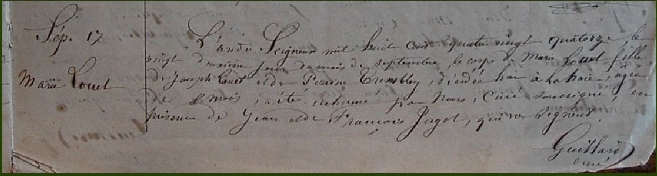 Sép. 17
Marie Louet
L'an du Seigneur mil huit cent quatre vingt quatorze le
vingt jour du mois de septembre, le corps de Marie Louet fille
de Joseph Louet et de Trembley, décédée hier à la haie, agée
de mois, a été inhumé par Nous, Curé soussigné, en
présence de Jean et de François Jagot, qui
Guillard
curé